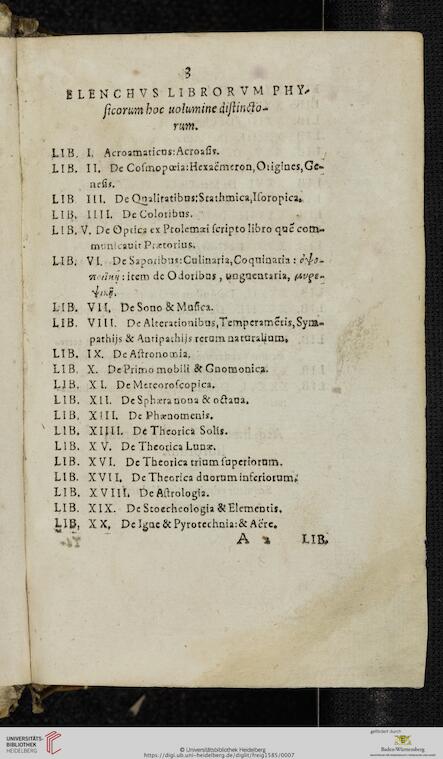 3
ELENCHVS LIBRORVM PHY-
ſicorum hoc uolumine diſtincto-
rum.
LIB. I. Acroamaticus: Acroaſis.
LIB. II. De Coſmopœia: Hexaëmeron, Origines, Ge-
neſis.
LIB III. De Qualitatibus: Stathmica, Iſoropica.
LIB. IIII. De Coloribus.
LIB. V. De Optica ex Ptolemæi ſcripto libro quē com-
municauit Prætorius.
LIB. VI. De Saporibus: Culinaria, Coquinaria: ὀψο-
ποιϊκὴ: item de Odoribus, vnguentaria, μυρε-
ψικὴ.
LIB. VII. De Sono & Muſica.
LIB. VIII. De Alterationibus, Temperamētis, Sym-
pathijs & Antipathijs rerum naturalium.
LIB. IX. De Aſtronomia.
LIB. X. De Primo mobili & Gnomonica.
LIB. XI. De Meteoroſcopica.
LIB. XII. De Sphæra nona & octaua.
LIB. XIII. De Phænomenis.
LIB. XIIII. De Theorica Solis.
LIB. XV. De Theorica Lunæ.
LIB. XVI. De Theorica trium ſuperiorum.
LIB. XVII. De Theorica duorum inferiorum.
LIB. XVIII. De Aſtrologia.
LIB. XIX. De Stoecheologia & Elementis.
LIB. XX. De Igne & Pyrotechnia: & Aëre.
A 2 LIB.
UNIVERSITÄTS-
BIBLIOTHEK
HEIDELBERG
© Universitätsbibliothek Heidelberg
https://digi.ub.uni-heidelberg.de/diglit/freig1585/0007
gefördert durch
Baden-Württemberg